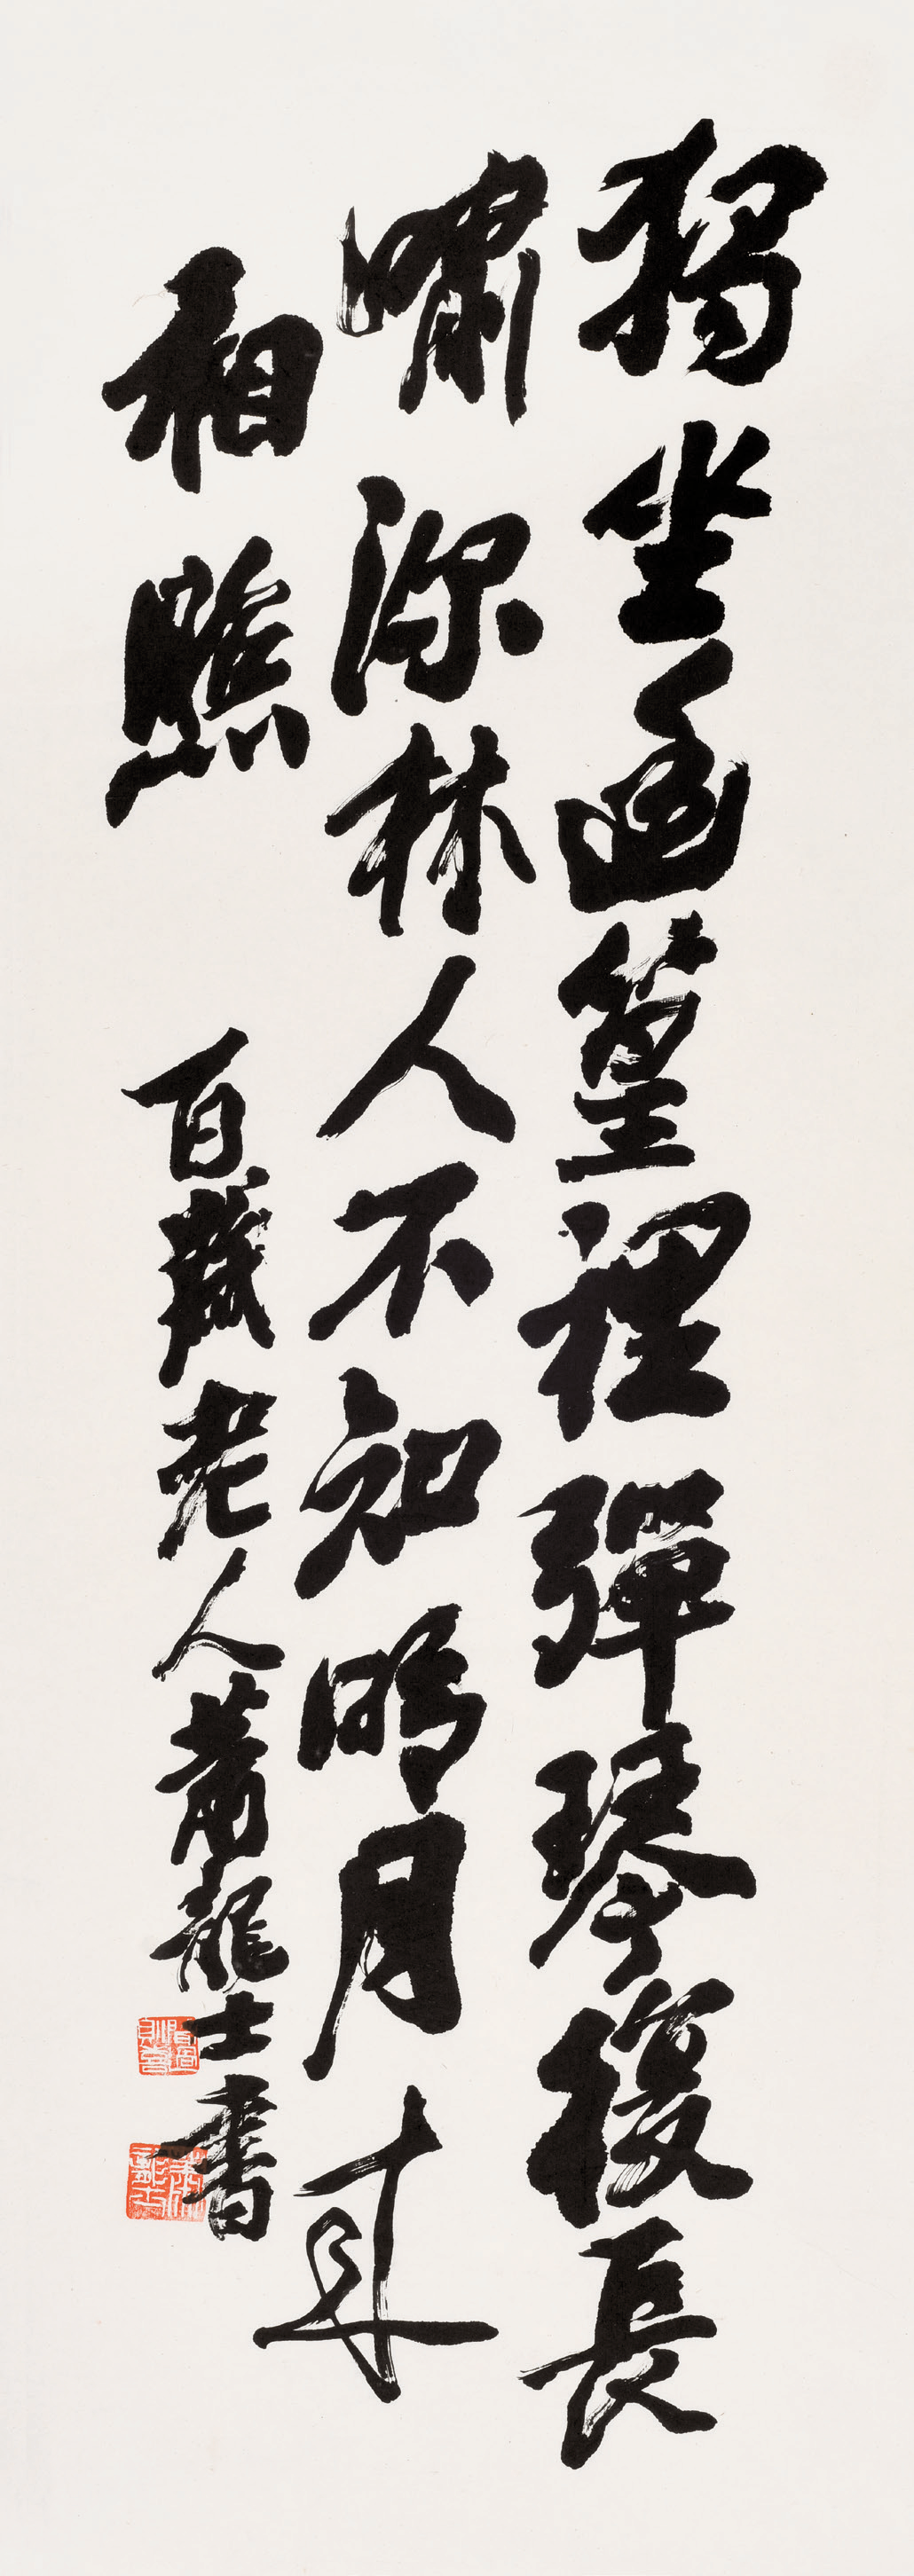 獨坐幽篁裡彈琴復長
嘯深林人不知明月來
相照
百歲老人蕭龍士書